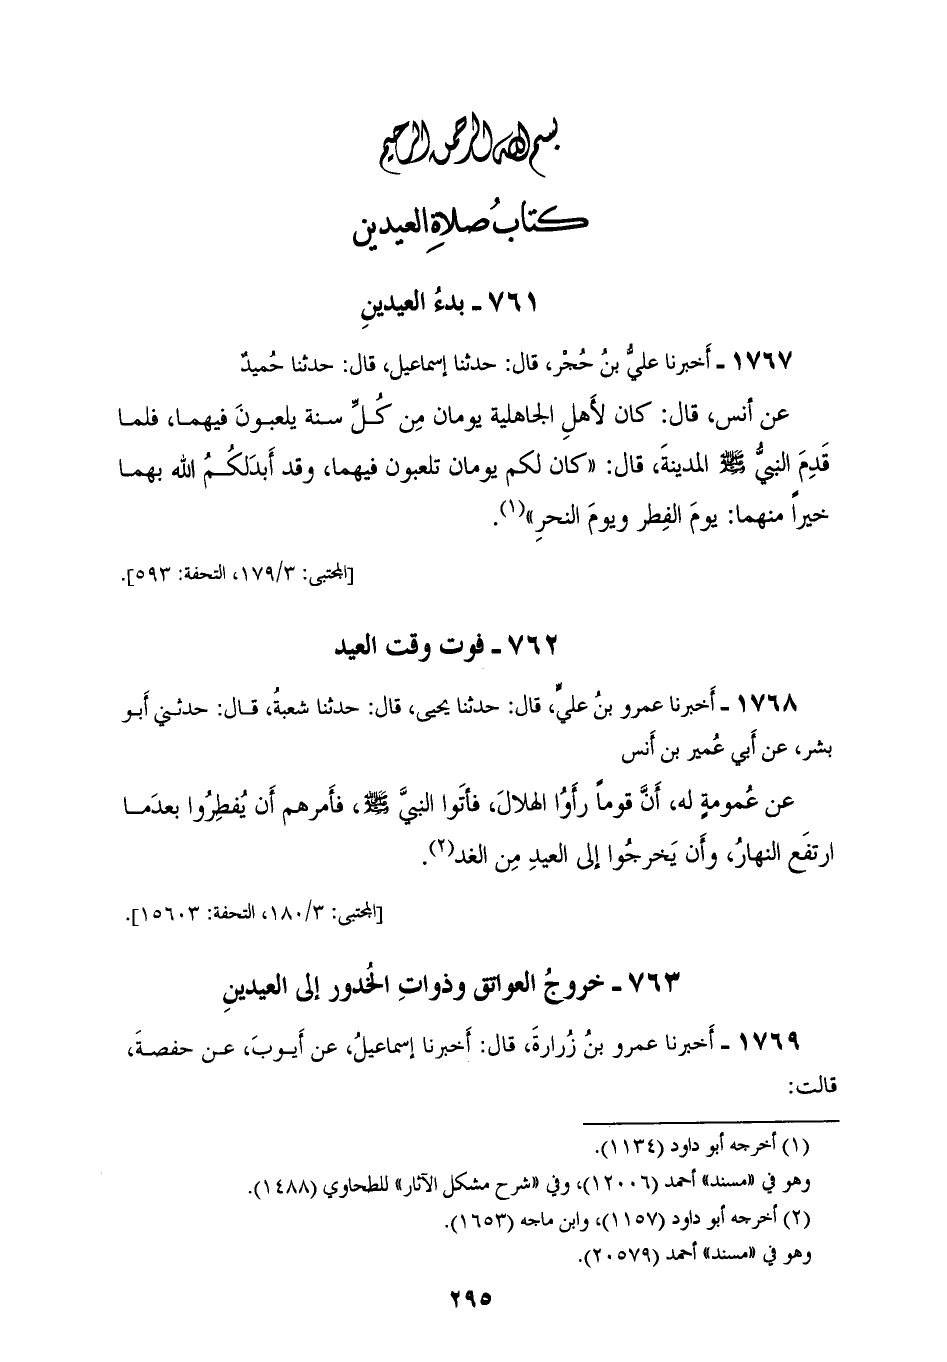 بسم الله الرحمن الرحيم
كتابُ صلاةِ العيدين
٧٦١ ـ بدءُ العيدينِ
١٧٦٧ ـ أَخبرنا عليُّ بنُ حُجْر، قال: حدثنا إسماعيل، قال: حدثنا حُميدٌ
عن أنس، قال: كان لأَهلِ الجاهلية يومان مِن كُلِّ سنة يلعبونَ فيهما، فلما
قَدِمَ النبيُّ ﷺ المدينةَ، قال: «كان لكم يومان تلعبون فيهما، وقد أَبدَلكُمُ الله بهما
خيراً منهما: يومَ الفِطر ويومَ النحرِ»(١).
[المجتبى: ١٧٩/٣، التحفة: ٥٩٣].
٧٦٢ ـ فوت وقت العيد
١٧٦٨ ـ أَخبرنا عمرو بنُ عليٍّ، قال: حدثنا يحيى، قال: حدثنا شعبةُ، قال: حدثني أَبو
بشر، عن أَبي عُمير بن أَنس
عن عُمومةٍ له، أَنَّ قوماً رأَوُا الهلالَ، فأتَوا النبيَّ ﷺ، فأَمرهم أَن يُفطِرُوا بعدَما
ارتفَع النهارُ، وأَن يَخرجُوا إلى العيدِ مِن الغد(٢).
[المجتبى: ١٨٠/٣، التحفة: ١٥٦٠٣].
٧٦٣ ـ خروجُ العواتق وذواتِ الخُدور إلى العيدينِ
١٧٦٩ ـ أَخبرنا عمرو بنُ زُرارةَ، قال: أَخبرنا إسماعيلُ، عن أَيوبَ، عن حفصةَ،
قالت:
(١) أخرجه أبو داود (١١٣٤).
وهو في «مسند» أحمد (١٢٠٠٦)، وفي «شرح مشكل الآثار» للطحاوي (١٤٨٨).
(٢) أخرجه أبو داود (١١٥٧)، وابن ماجه (١٦٥٣).
وهو في «مسند» أحمد (٢٠٥٧٩).
٢٩٥